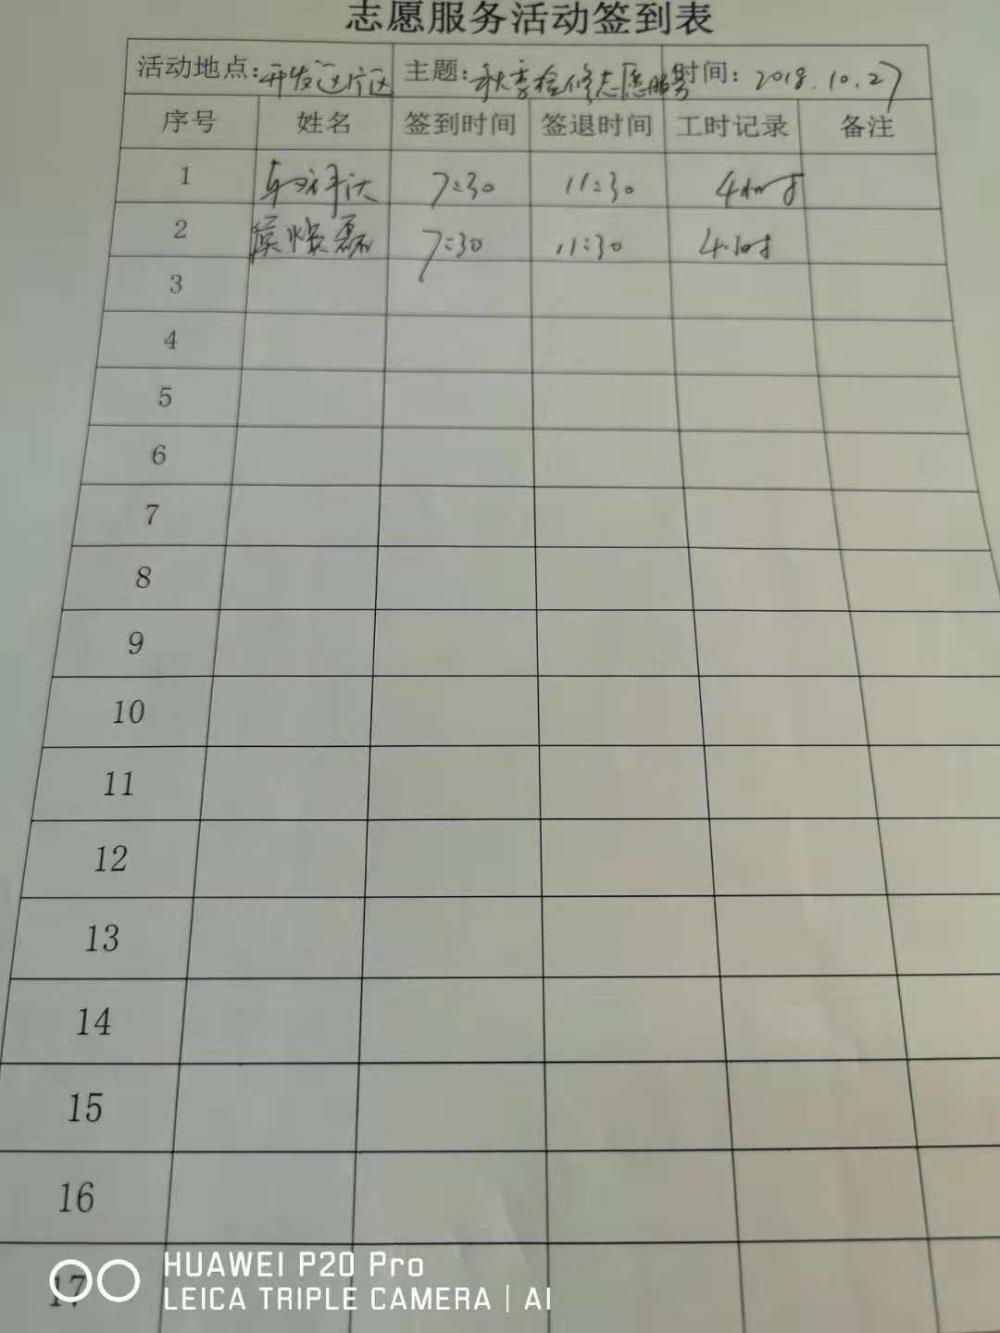 志愿服务活动签到表
活动地点:开发区片区 主题:秋季检修志愿服务 时间:2018.10.27
序号 姓名 签到时间 签退时间 工时记录 备注
1 7:30 11:30 4小时
2 7:30 11:30 4小时
3
4
5
6
7
8
9
10
11
12
13
14
15
16
17
HUAWEI P20 Pro
LEICA TRIPLE CAMERA | AI